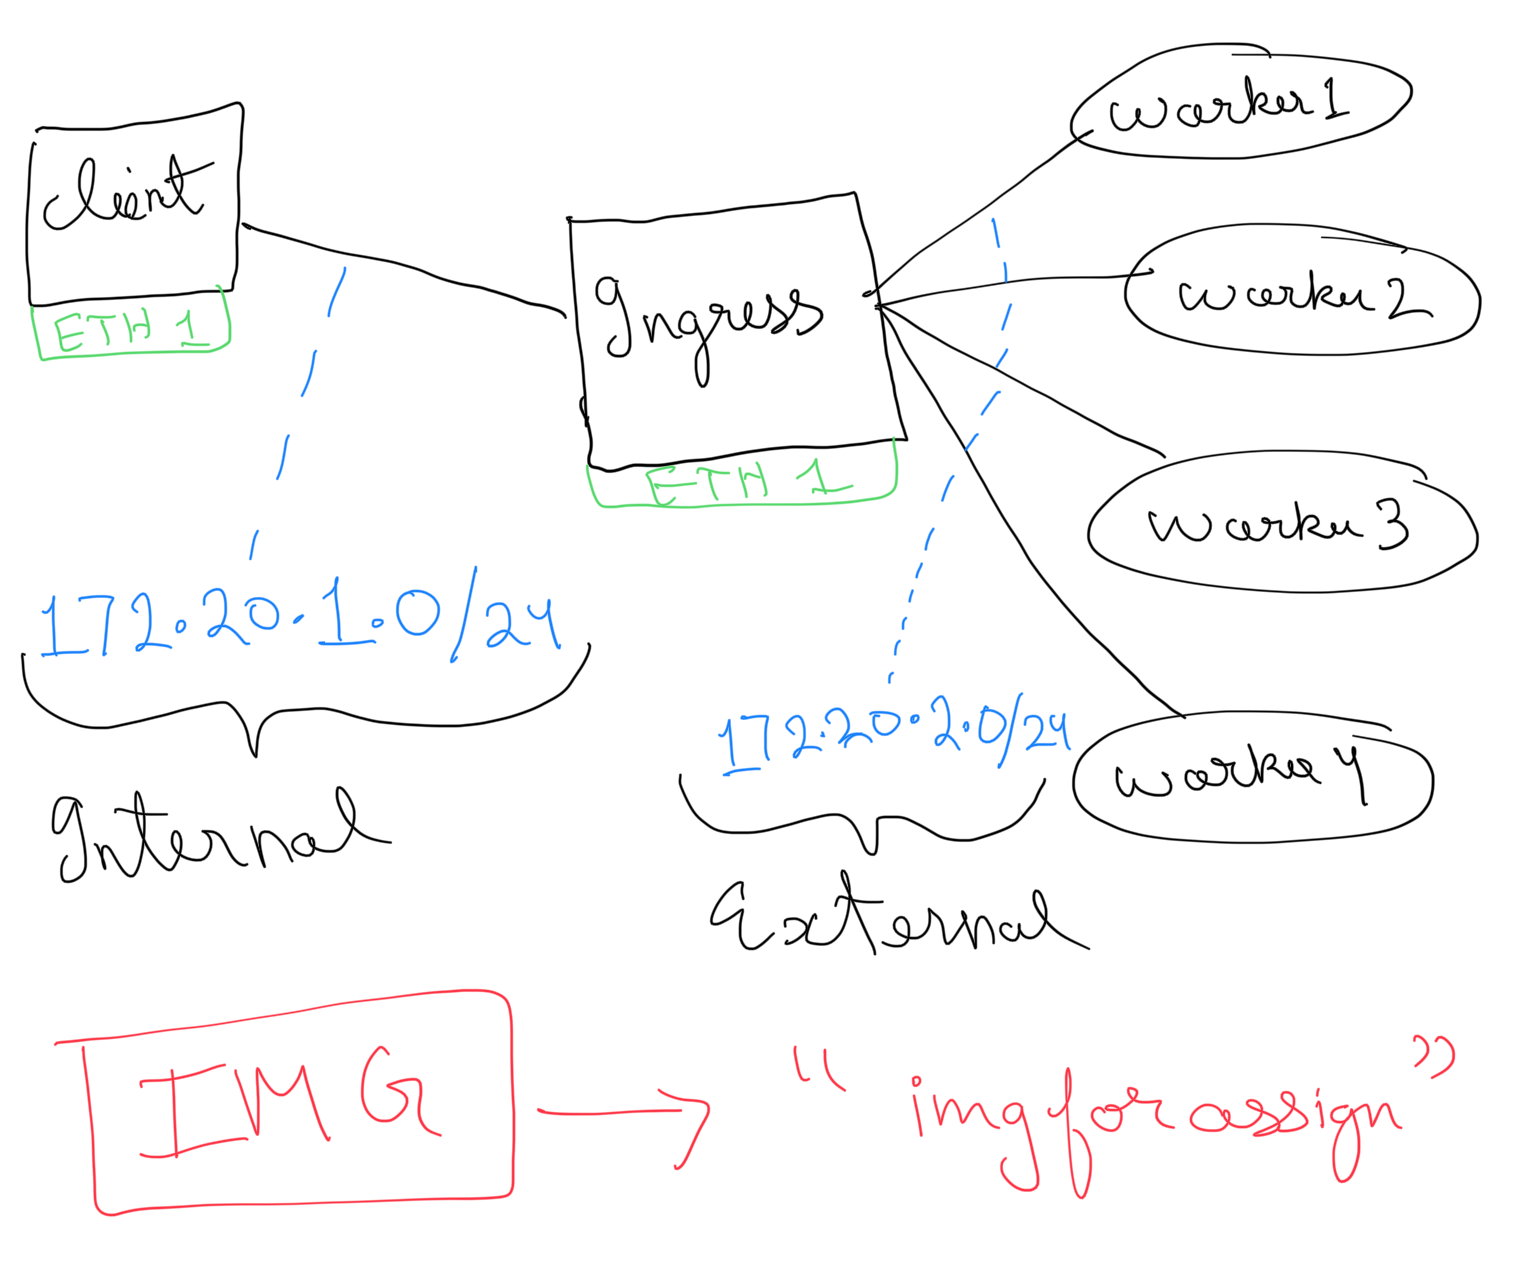 client
ETH 1
Ingress
ETH 1
worker 1
worker 2
worker 3
worker 4
172.20.1.0/24
Internal
172.20.2.0/24
External
IMG
"imgforassign"